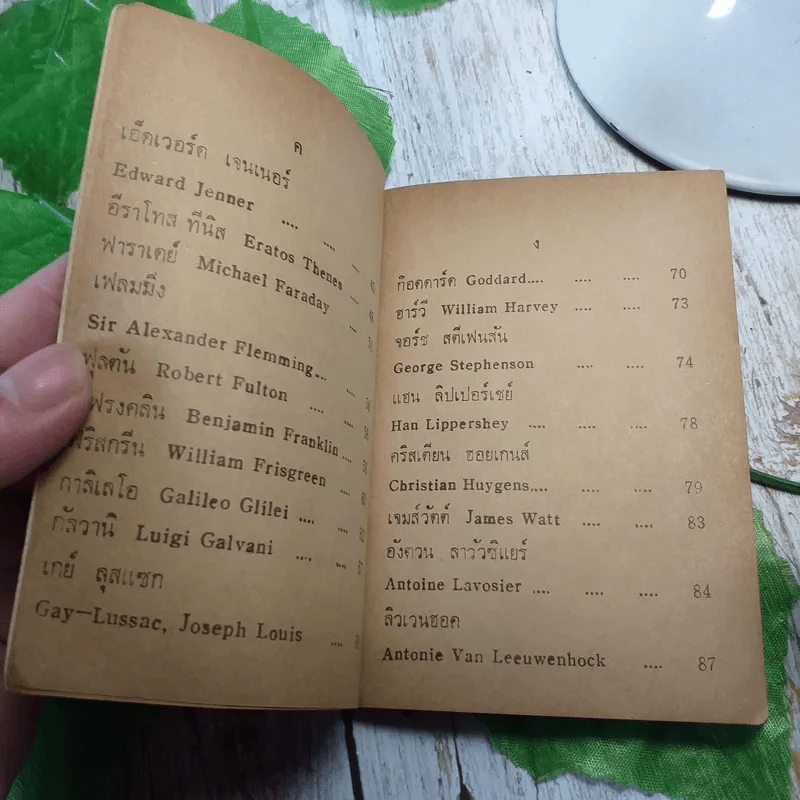 ค
เอ็ดเวอร์ด เจนเนอร์
Edward Jenner .... .... ....
อีราโทส ทีนิส Eratos Thenes
ฟาราเดย์ Michael Faraday ....
เฟลมมิ่ง
Sir Alexander Flemming... ....
ฟุลตัน Robert Fulton .... ....
ฟรงคลิน Benjamin Franklin....
ฟริสกรีน William Frisgreen ....
กาลิเลโอ Galileo Glilei .... ....
กัลวานิ Luigi Galvani .... ....
เกย์ ลุสแซก
Gay—Lussac, Joseph Louis ....
ง
ก๊อดดาร์ด Goddard.... .... .... 70
ฮาร์วี William Harvey .... .... 73
จอร์ช สตีเฟนสัน
George Stephenson .... .... 74
แฮน ลิปเปอร์เชย์
Han Lippershey .... .... .... 78
คริสเตียน ฮอยเกนส์
Christian Huygens.... .... .... 79
เจมส์วัตต์ James Watt .... .... 83
อังตวน ลาวัวซิแยร์
Antoine Lavosier .... .... .... 84
ลิวเวนฮอค
Antonie Van Leeuwenhock .... 87